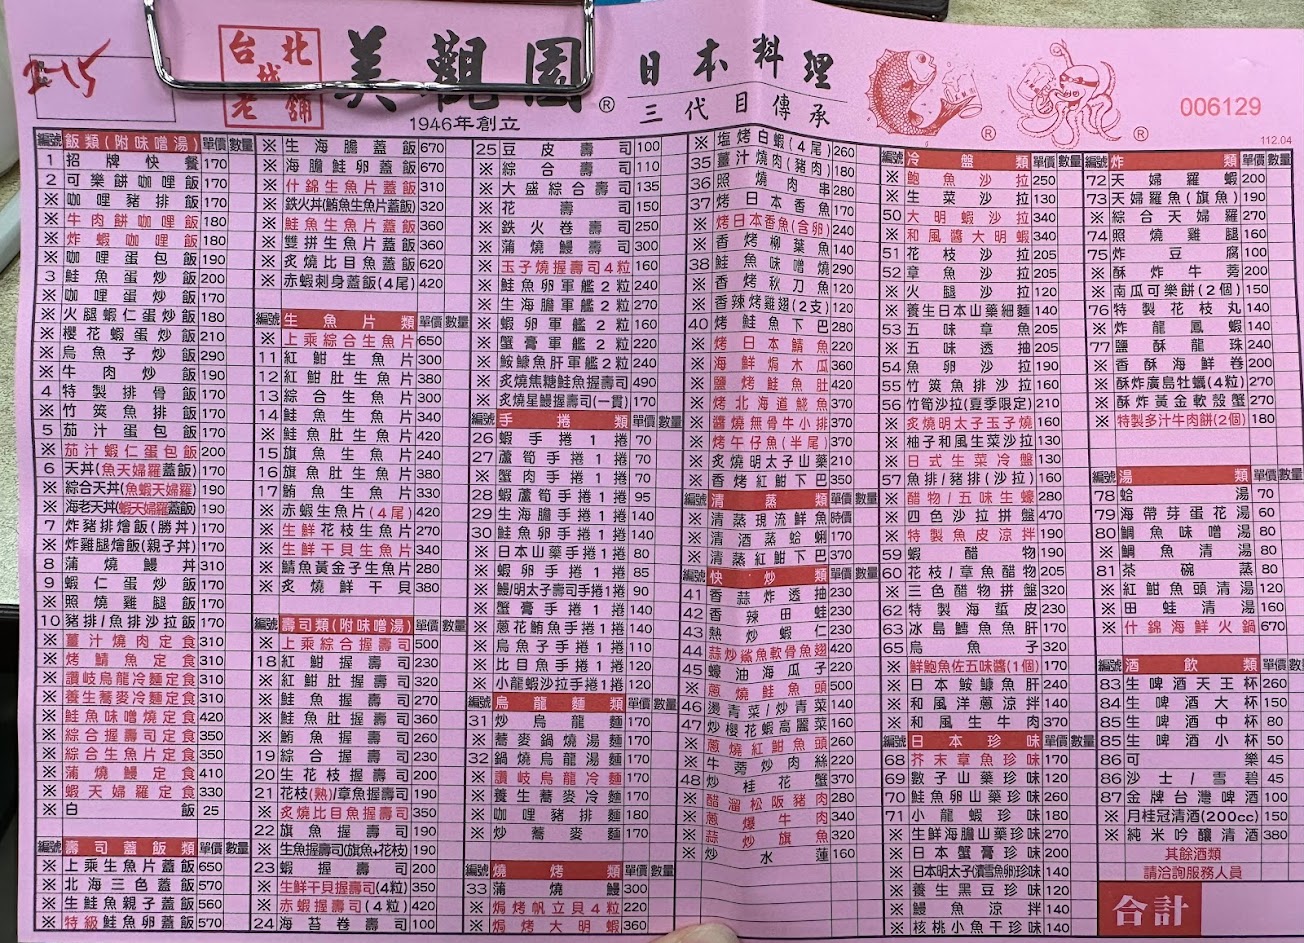 2-15
台北城老舖
美觀園®
1946年創立
日本料理
三代目傳承
® ®
006129
112.04
編號 飯類(附味噌湯) 單價 數量
1 招牌快餐 170
2 可樂餅咖哩飯 170
※ 咖哩豬排飯 170
※ 牛肉餅咖哩飯 180
※ 炸蝦咖哩飯 180
※ 咖哩蛋包飯 190
3 鮭魚蛋炒飯 200
※ 咖哩蛋炒飯 170
※ 火腿蝦仁蛋炒飯 180
※ 櫻花蝦蛋炒飯 210
※ 烏魚子炒飯 290
※ 牛肉炒飯 190
4 特製排骨飯 170
※ 竹筴魚排飯 170
5 茄汁蛋包飯 170
※ 茄汁蝦仁蛋包飯 200
6 天丼(魚天婦羅蓋飯) 170
※ 綜合天丼(魚蝦天婦羅) 190
※ 海老天丼(蝦天婦羅蓋飯) 190
7 炸豬排燴飯(勝丼) 170
※ 炸雞腿燴飯(親子丼) 170
8 蒲燒鰻丼 310
9 蝦仁蛋炒飯 170
※ 照燒雞腿飯 170
10 豬排/魚排沙拉飯 170
※ 薑汁燒肉定食 310
※ 烤鯖魚定食 310
※ 讚岐烏龍冷麵定食 310
※ 養生蕎麥冷麵定食 310
※ 鮭魚味噌燒定食 420
※ 綜合握壽司定食 350
※ 綜合生魚片定食 350
※ 蒲燒鰻定食 410
※ 蝦天婦羅定食 330
※ 白飯 25
編號 壽司蓋飯類 單價 數量
※ 上乘生魚片蓋飯 650
※ 北海三色蓋飯 570
※ 生鮭魚親子蓋飯 560
※ 特級鮭魚卵蓋飯 570
※ 生海膽蓋飯 670
※ 海膽鮭卵蓋飯 670
※ 什錦生魚片蓋飯 310
※ 鉄火丼(鮪魚生魚片蓋飯) 320
※ 鮭魚生魚片蓋飯 360
※ 雙拼生魚片蓋飯 360
※ 炙燒比目魚蓋飯 620
※ 赤蝦刺身蓋飯(4尾) 420
編號 生魚片類 單價 數量
※ 上乘綜合生魚片 650
11 紅魽生魚片 300
12 紅魽肚生魚片 380
13 綜合生魚片 300
14 鮭魚生魚片 340
※ 鮭魚肚生魚片 420
15 旗魚生魚片 240
16 旗魚肚生魚片 380
17 鮪魚生魚片 330
※ 赤蝦生魚片(4尾) 420
※ 生鮮花枝生魚片 270
※ 生鮮干貝生魚片 340
※ 鯖魚黃金子生魚片 280
※ 炙燒鮮干貝 380
編號 壽司類(附味噌湯) 單價 數量
※ 上乘綜合握壽司 500
18 紅魽握壽司 230
※ 紅魽肚握壽司 320
※ 鮭魚握壽司 270
※ 鮭魚肚握壽司 360
※ 鮪魚握壽司 260
19 綜合握壽司 230
20 生花枝握壽司 200
21 花枝(熟)/章魚握壽司 190
※ 炙燒比目魚握壽司 350
22 旗魚握壽司 190
※ 生魚握壽司(旗魚+花枝) 190
23 蝦握壽司 200
※ 生鮮干貝握壽司(4粒) 350
※ 赤蝦握壽司(4粒) 420
24 海苔卷壽司 100
25 豆皮壽司 100
※ 綜合壽司 110
※ 大盛綜合壽司 135
※ 花壽司 150
※ 鉄火卷壽司 250
※ 蒲燒鰻壽司 300
※ 玉子燒握壽司4粒 160
※ 鮭魚卵軍艦2粒 240
※ 生海膽軍艦2粒 270
※ 蝦卵軍艦2粒 160
※ 蟹膏軍艦2粒 220
※ 鮟鱇魚肝軍艦2粒 240
※ 炙燒焦糖鮭魚握壽司 490
※ 炙燒星鰻握壽司(一貫) 170
編號 手捲類 單價 數量
26 蝦手捲1捲 70
27 蘆筍手捲1捲 70
※ 蟹肉手捲1捲 70
28 蝦蘆筍手捲1捲 95
29 生海膽手捲1捲 140
30 鮭魚卵手捲1捲 140
※ 日本山藥手捲1捲 80
※ 蝦卵手捲1捲 85
※ 鰻/明太子壽司手捲1捲 90
※ 蟹膏手捲1捲 140
※ 蔥花鮪魚手捲1捲 140
※ 烏魚子手捲1捲 110
※ 比目魚手捲1捲 120
※ 小龍蝦沙拉手捲1捲 120
編號 烏龍麵類 單價 數量
31 炒烏龍麵 170
※ 蕎麥鍋燒湯麵 170
32 鍋燒烏龍湯麵 170
※ 讚岐烏龍冷麵 170
※ 養生蕎麥冷麵 170
※ 咖哩豬排麵 180
※ 炒蕎麥麵 170
編號 燒烤類 單價 數量
33 蒲燒鰻 300
※ 焗烤帆立貝4粒 220
※ 焗烤大明蝦 360
※ 塩烤白蝦(4尾) 260
35 薑汁燒肉(豬肉) 180
36 照燒肉串 280
37 烤日本香魚 170
※ 烤日本香魚(含卵) 240
※ 香烤柳葉魚 140
38 鮭魚味噌燒 290
※ 香烤秋刀魚 120
※ 香辣烤雞翅(2支) 120
40 烤鮭魚下巴 280
※ 烤日本鯖魚 220
※ 海鮮焗木瓜 360
※ 鹽烤鮭魚肚 420
※ 烤北海道鯱魚 370
※ 醬燒無骨牛小排 370
※ 烤午仔魚(半尾) 370
※ 炙燒明太子山藥 210
※ 香烤紅魽下巴 350
編號 清蒸類 單價 數量
※ 清蒸現流鮮魚 時價
※ 清酒蒸蛤蜊 170
※ 清蒸紅魽下巴 370
編號 快炒類 單價 數量
41 香蒜炸透抽 230
42 香辣田蛙 230
43 熱炒蝦仁 230
44 蒜炒鯊魚軟骨魚翅 420
45 蠔油海瓜子 220
※ 蔥燒鮭魚頭 500
46 燙青菜/炒青菜 140
47 炒櫻花蝦高麗菜 160
※ 蔥燒紅魽魚頭 260
※ 牛蒡炒肉絲 220
48 炒桂花蟹 370
※ 醋溜松阪豬肉 280
※ 蔥爆牛肉 340
※ 蒜炒旗魚 320
※ 炒水蓮 160
編號 冷盤類 單價 數量
※ 鮑魚沙拉 250
※ 生菜沙拉 130
50 大明蝦沙拉 340
※ 和風醬大明蝦 340
51 花枝沙拉 205
52 章魚沙拉 205
※ 火腿沙拉 120
※ 養生日本山藥細麵 140
53 五味章魚 205
※ 五味透抽 205
54 魚卵沙拉 190
55 竹筴魚排沙拉 160
56 竹筍沙拉(夏季限定) 210
※ 炙燒明太子玉子燒 160
※ 柚子和風生菜沙拉 130
※ 日式生菜冷盤 130
57 魚排/豬排(沙拉) 160
※ 醋物/五味生蠔 280
※ 四色沙拉拼盤 470
※ 特製魚皮涼拌 190
59 蝦醋物 190
60 花枝/章魚醋物 205
※ 三色醋物拼盤 320
62 特製海蜇皮 230
63 冰島鱈魚魚肝 170
65 烏魚子 320
※ 鮮鮑魚佐五味醬(1個) 170
※ 日本鮟鱇魚肝 240
※ 和風洋蔥涼拌 140
※ 和風生牛肉 370
編號 日本珍味 單價 數量
68 芥末章魚珍味 170
69 數子山藥珍味 120
70 鮭魚卵山藥珍味 260
71 小龍蝦珍味 180
※ 生鮮海膽山藥珍味 270
※ 日本蟹膏珍味 200
※ 日本明太子(漬雪魚卵)珍味 140
※ 養生黑豆珍味 120
※ 鰻魚涼拌 140
※ 核桃小魚干珍味 140
編號 炸類 單價 數量
72 天婦羅蝦 200
73 天婦羅魚(旗魚) 190
※ 綜合天婦羅 270
74 照燒雞腿 160
75 炸豆腐 100
※ 酥炸牛蒡 200
※ 南瓜可樂餅(2個) 150
76 特製花枝丸 140
※ 炸龍鳳蝦 140
77 鹽酥龍珠 240
※ 香酥海鮮卷 200
※ 酥炸廣島牡蠣(4粒) 270
※ 酥炸黃金軟殼蟹 270
※ 特製多汁牛肉餅(2個) 180
編號 湯類 單價 數量
78 蛤湯 70
79 海帶芽蛋花湯 60
80 鯛魚味噌湯 80
※ 鯛魚清湯 80
81 茶碗蒸 80
※ 紅魽魚頭清湯 120
※ 田蛙清湯 160
※ 什錦海鮮火鍋 670
編號 酒飲類 單價 數量
83 生啤酒天王杯 260
84 生啤酒大杯 150
85 生啤酒中杯 80
85 生啤酒小杯 50
86 可樂 45
86 沙士/雪碧 45
87 金牌台灣啤酒 100
※ 月桂冠清酒(200cc) 150
※ 純米吟釀清酒 380
其餘酒類
請洽詢服務人員
合計